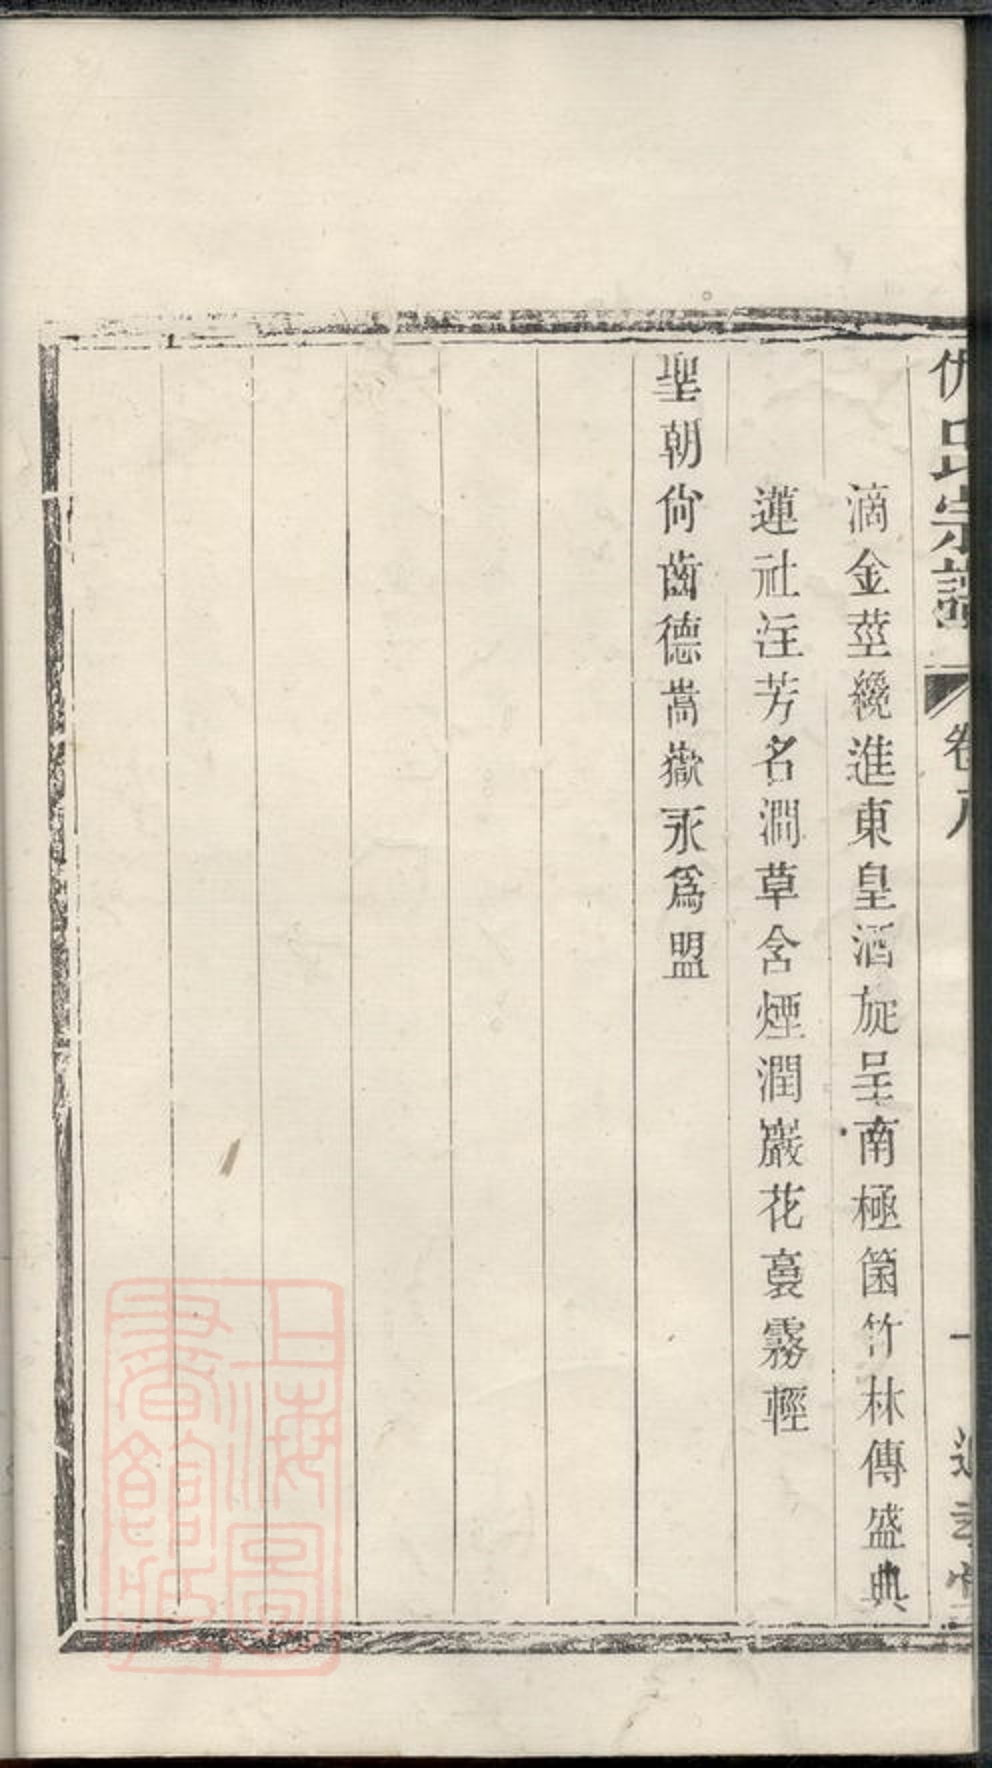 氏宗譜
卷
滴金莖纔進東皇酒旋呈南極箇竹林傳盛典
蓮社注芳名澗草含煙潤巖花裛霧輕
聖朝尙齒德嵩嶽永爲盟
上海圖
書館藏